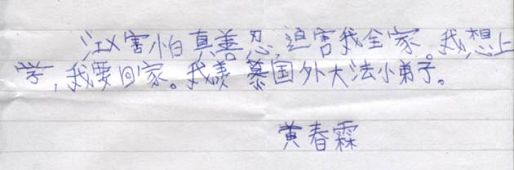 江××害怕真善忍,迫害我全家。我想上
学,我要回家。我羡慕国外大法小弟子。
黄春霖